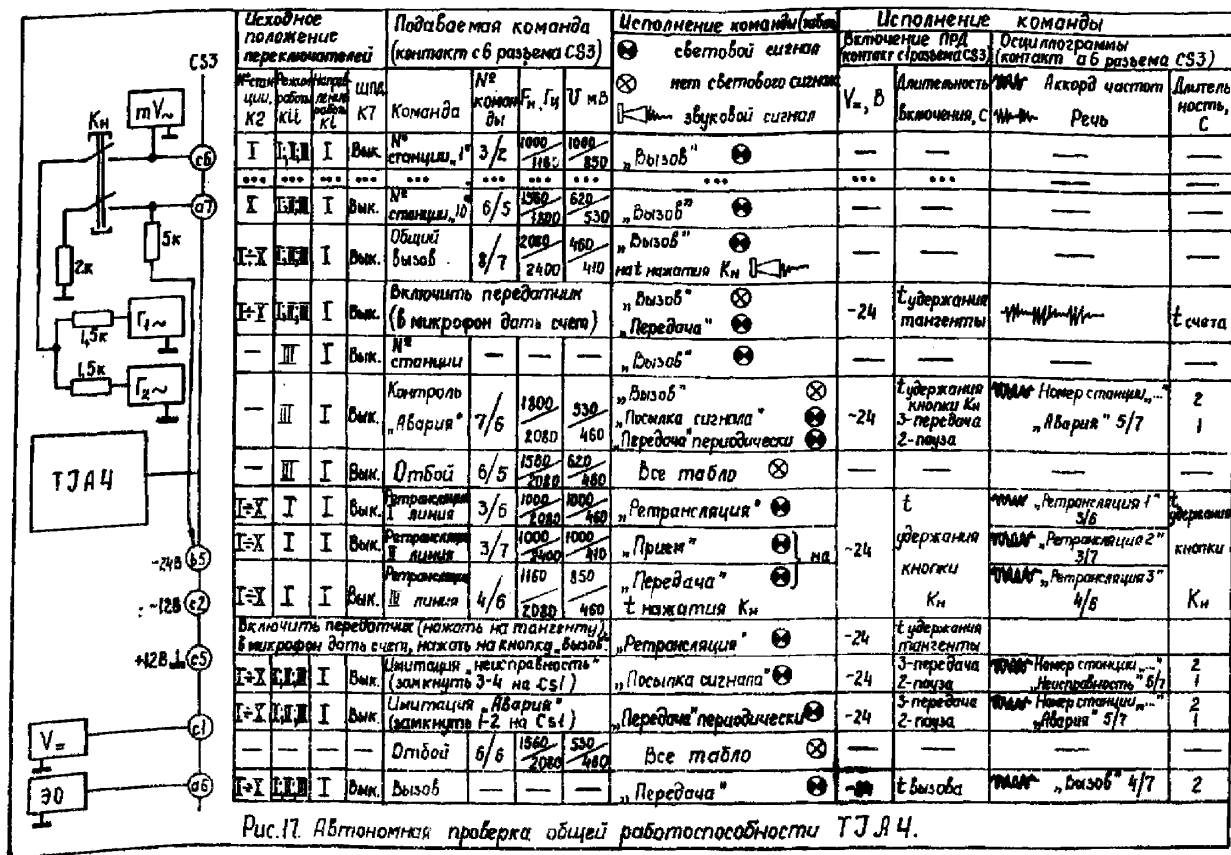 CS3
Кн
mV~
с6
а7
5к
2к
1,5к
Г1~
1,5к
Г2~
TJA4
-24В b5
-12В с2
+12В с5
V=
с1
ЭО
а6
Исходное положение переключателей
Подаваемая команда (контакт с6 разъема CS3)
Исполнение команды
световой сигнал
нет светового сигнала
звуковой сигнал
Исполнение команды
Включение ПРД (контакт с1 разъема CS3)
Осциллограммы (контакт а6 разъема CS3)
№ станции, К2
Режим работы
Направление работы К1
ШПД К7
Команда
№ команды
Fн, Гц
U мВ
V=, В
Длительность включения, С
Аккорд частот
Речь
Длительность, С
I I,II,III I Вык. № станции „1" 3/2 1000/1160 1000/850 „Вызов" — — — —
... ... ... ... ... ... ... ... ... ... ... — —
X I,II,III I Вык. № станции „10" 6/5 1560/1800 620/530 „Вызов" — — — —
I÷X I,II,III I Вык. Общий вызов 8/7 2080/2400 460/410 „Вызов" на t нажатия Кн — — — —
I÷X I,II,III I Вык. Включить передатчик (в микрофон дать счет) „Вызов" „Передача" -24 t удержания тангенты t счета
— III I Вык. № станции — — — „Вызов" — — — —
— III I Вык. Контроль „Авария" 7/6 1800/2080 530/460 „Вызов" „Посылка сигнала" „Передача" периодически -24 t удержания кнопки Кн 3-передача 2-пауза Номер станции „..." „Авария" 5/7 2 1
— III I Вык. Отбой 6/5 1580/2080 620/460 Все табло — — — —
I÷X I I Вык. Ретрансляция I линия 3/6 1000/2080 1000/460 „Ретрансляция" t „Ретрансляция 1" 3/6 t удержания
I÷X I I Вык. Ретрансляция II линия 3/7 1000/2400 1000/410 „Прием" на -24 удержания кнопки „Ретрансляция 2" 3/7 кнопки
I÷X I I Вык. Ретрансляция III линия 4/6 1160/2080 850/460 „Передача" t нажатия Кн Кн „Ретрансляция 3" 4/6 Кн
Включить передатчик (нажать на тангенту) в микрофон дать счет, нажать на кнопку „Вызов". „Ретрансляция" -24 t удержания тангенты
I÷X I,II,III I Вык. Имитация „неисправность" (замкнуть 3-4 на Cs1) „Посылка сигнала" -24 3-передача 2-пауза Номер станции „..." „Неисправность" 6/7 2 1
I÷X I,II,III I Вык. Имитация „Авария" (замкнуть 1-2 на Cs1) „Передача" периодически -24 3-передача 2-пауза Номер станции „..." „Авария" 5/7 2 1
— — — — Отбой 6/6 1560/2080 530/460 Все табло — — — —
I÷X I,II,III I Вык. Вызов — — — „Передача" t вызова „Вызов" 4/7 2
Рис.17. Автономная проверка общей работоспособности TJA4.